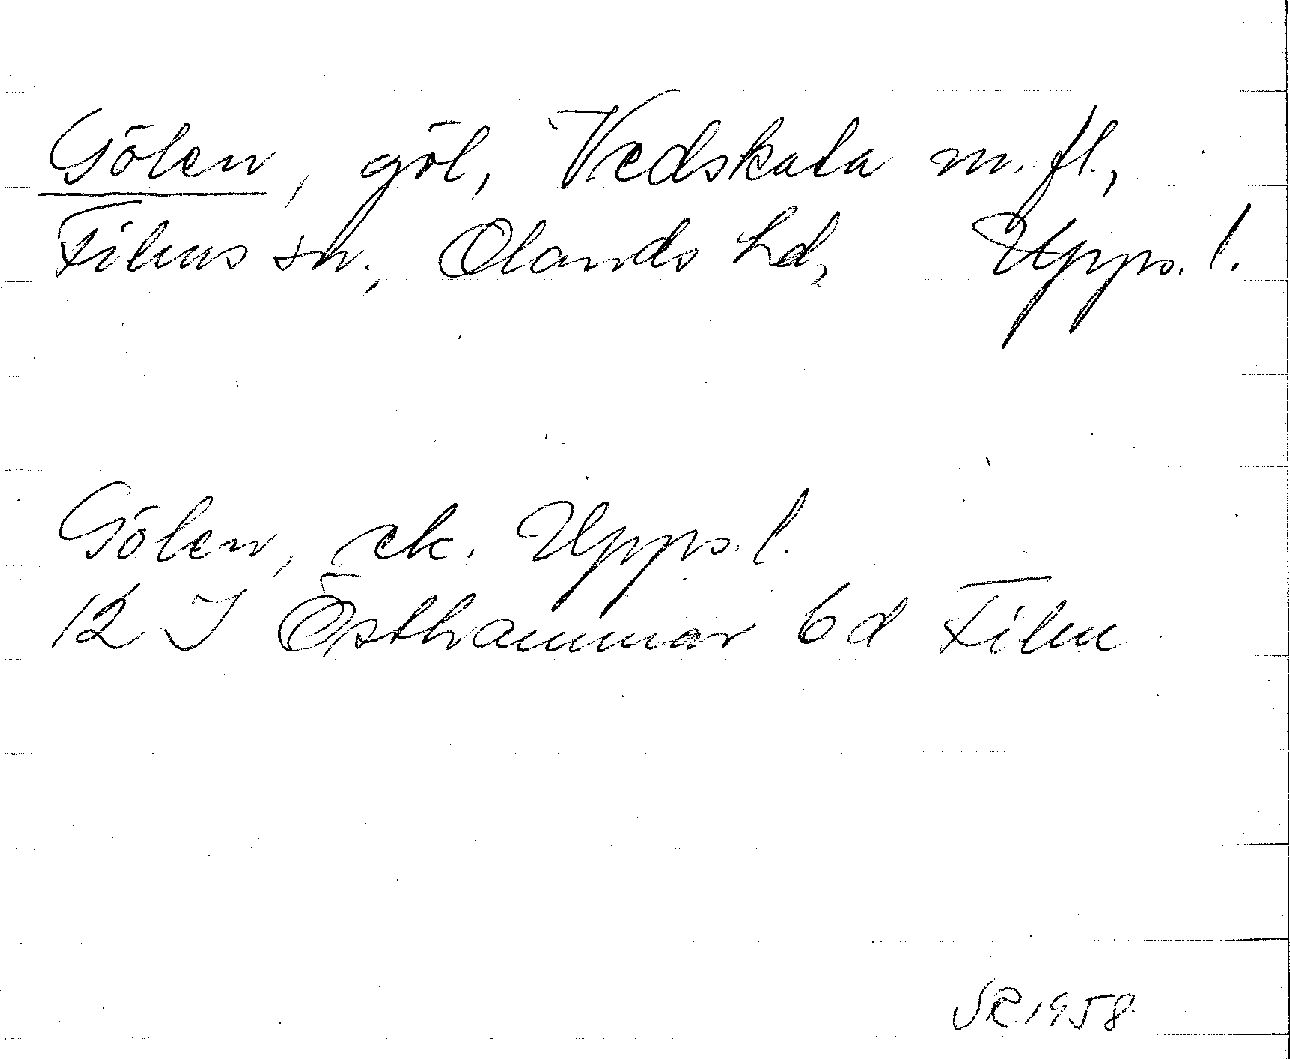 Gölen, göl, Vedskata m.fl.,
Films sn., Olands hd, Upps. l.
Gölen, ek. Upps. l.
12 I Östhammar 6d Film
SR 1958